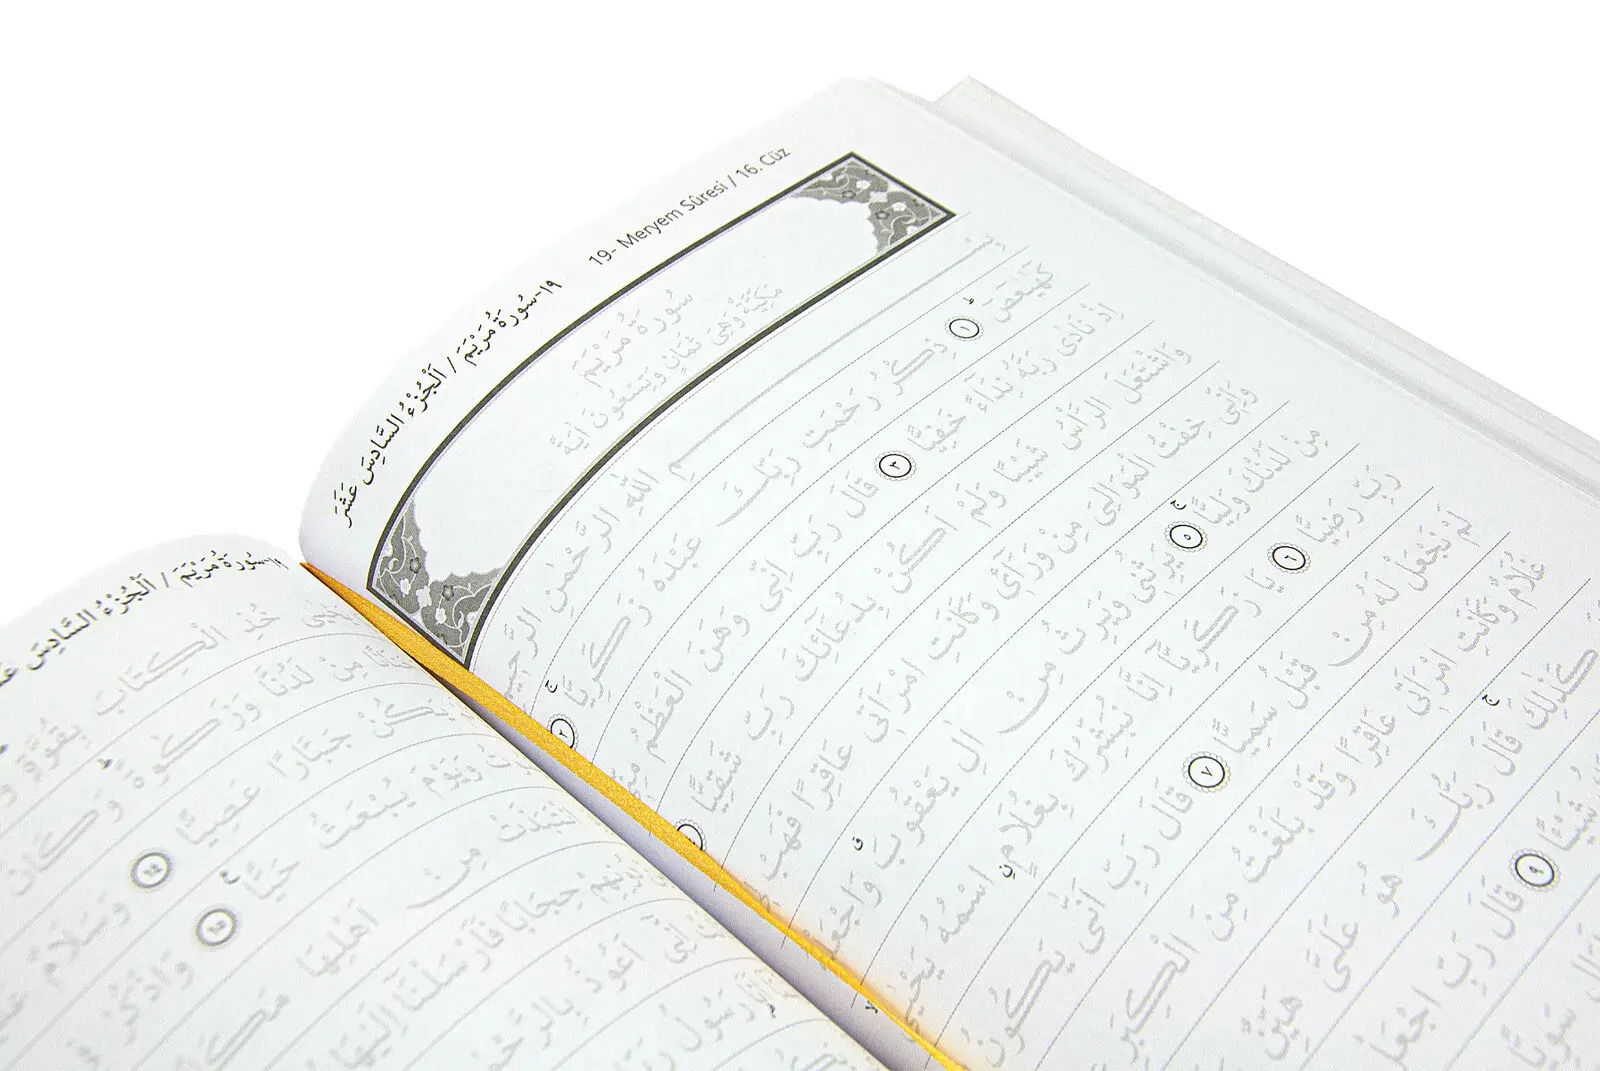 19- Meryem Sûresi / 16. Cüz
١٩-سُورَةُ مَرْيَمَ / اَلْجُزْءُ السَّادِسَ عَشَرَ
سُورَةُ مَرْيَمَ
مَكِّيَّةٌ وَهِيَ ثَمَانٍ وَتِسْعُونَ اٰيَةً
بِسْمِ اللّٰهِ الرَّحْمٰنِ الرَّحِيمِ
كٓهٰيٰعٓصٓ ١ ذِكْرُ رَحْمَتِ رَبِّكَ عَبْدَهُ زَكَرِيَّا ٢
اِذْ نَادٰى رَبَّهُ نِدَٓاءً خَفِيًّا ٣ قَالَ رَبِّ اِنِّى وَهَنَ الْعَظْمُ
وَاشْتَعَلَ الرَّأْسُ شَيْبًا وَلَمْ اَكُنْ بِدُعَٓائِكَ رَبِّ شَقِيًّا
وَاِنِّى خِفْتُ الْمَوَالِىَ مِنْ وَرَٓائِى وَكَانَتِ امْرَاَتِى عَاقِرًا فَهَبْ
مِنْ لَدُنْكَ وَلِيًّا ٥ يَرِثُنِى وَيَرِثُ مِنْ اٰلِ يَعْقُوبَ وَاجْعَلْهُ
رَبِّ رَضِيًّا ٦ يَا زَكَرِيَّٓا اِنَّا نُبَشِّرُكَ بِغُلَامٍ اسْمُهُ يَحْيٰى
لَمْ نَجْعَلْ لَهُ مِنْ قَبْلُ سَمِيًّا ٧ قَالَ رَبِّ اَنّٰى يَكُونُ
غُلَامٌ وَكَانَتِ امْرَاَتِى عَاقِرًا وَقَدْ بَلَغْتُ مِنَ الْكِبَرِ
كَذٰلِكَ قَالَ رَبُّكَ هُوَ عَلَىَّ هَيِّنٌ
شَيْـًٔا ٩ قَالَ رَبِّ اجْعَلْ
سَوِيًّا
سُورَةُ مَرْيَمَ / اَلْجُزْءُ السَّادِسَ
خُذِ الْكِتَابَ بِقُوَّةٍ
مِنْ لَدُنَّا وَزَكٰوةً وَكَانَ
يَكُنْ جَبَّارًا عَصِيًّا ١٤ وَسَلَامٌ
وَيَوْمَ يُبْعَثُ حَيًّا ١٥ وَاذْكُرْ
انْتَبَذَتْ مِنْ اَهْلِهَا مَكَانًا
حِجَابًا فَاَرْسَلْنَٓا اِلَيْهَا
اِنِّٓى اَعُوذُ بِالرَّحْمٰنِ
رَسُولُ